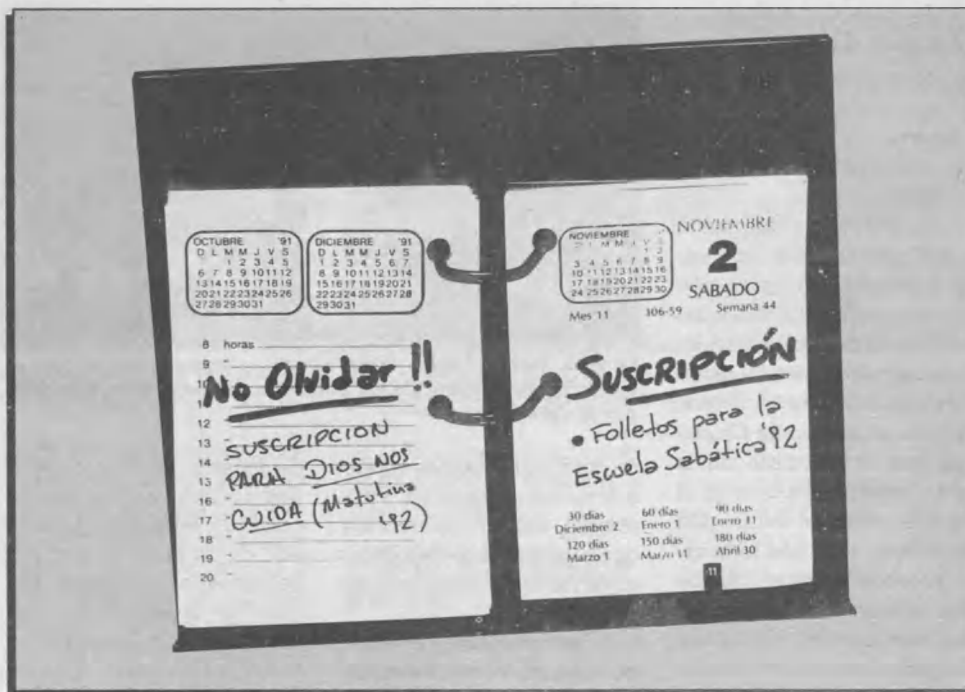 OCTUBRE '91
D L M M J V S
1 2 3 4 5
6 7 8 9 10 11 12
13 14 15 16 17 18 19
20 21 22 23 24 25 26
27 28 29 30 31
DICIEMBRE '91
D L M M J V S
1 2 3 4 5 6 7
8 9 10 11 12 13 14
15 16 17 18 19 20 21
22 23 24 25 26 27 28
29 30 31
8 horas
9 "
10
No Olvidar !!
12
13
SUSCRIPCION
14
PARA DIOS NOS
15
16
CUIDA (Matutina
17
'92)
18
19 "
20 "
NOVIEMBRE
D L M M J V S
1 2
3 4 5 6 7 8 9
10 11 12 13 14 15 16
17 18 19 20 21 22 23
24 25 26 27 28 29 30
NOVIEMBRE
2
SABADO
Mes 11 306-59 Semana 44
SUSCRIPCIÓN
• Folletos para la
Escuela Sabática '92
30 días 60 días 90 días
Diciembre 2 Enero 1 Enero 11
120 días 150 días 180 días
Marzo 1 Marzo 31 Abril 30
11